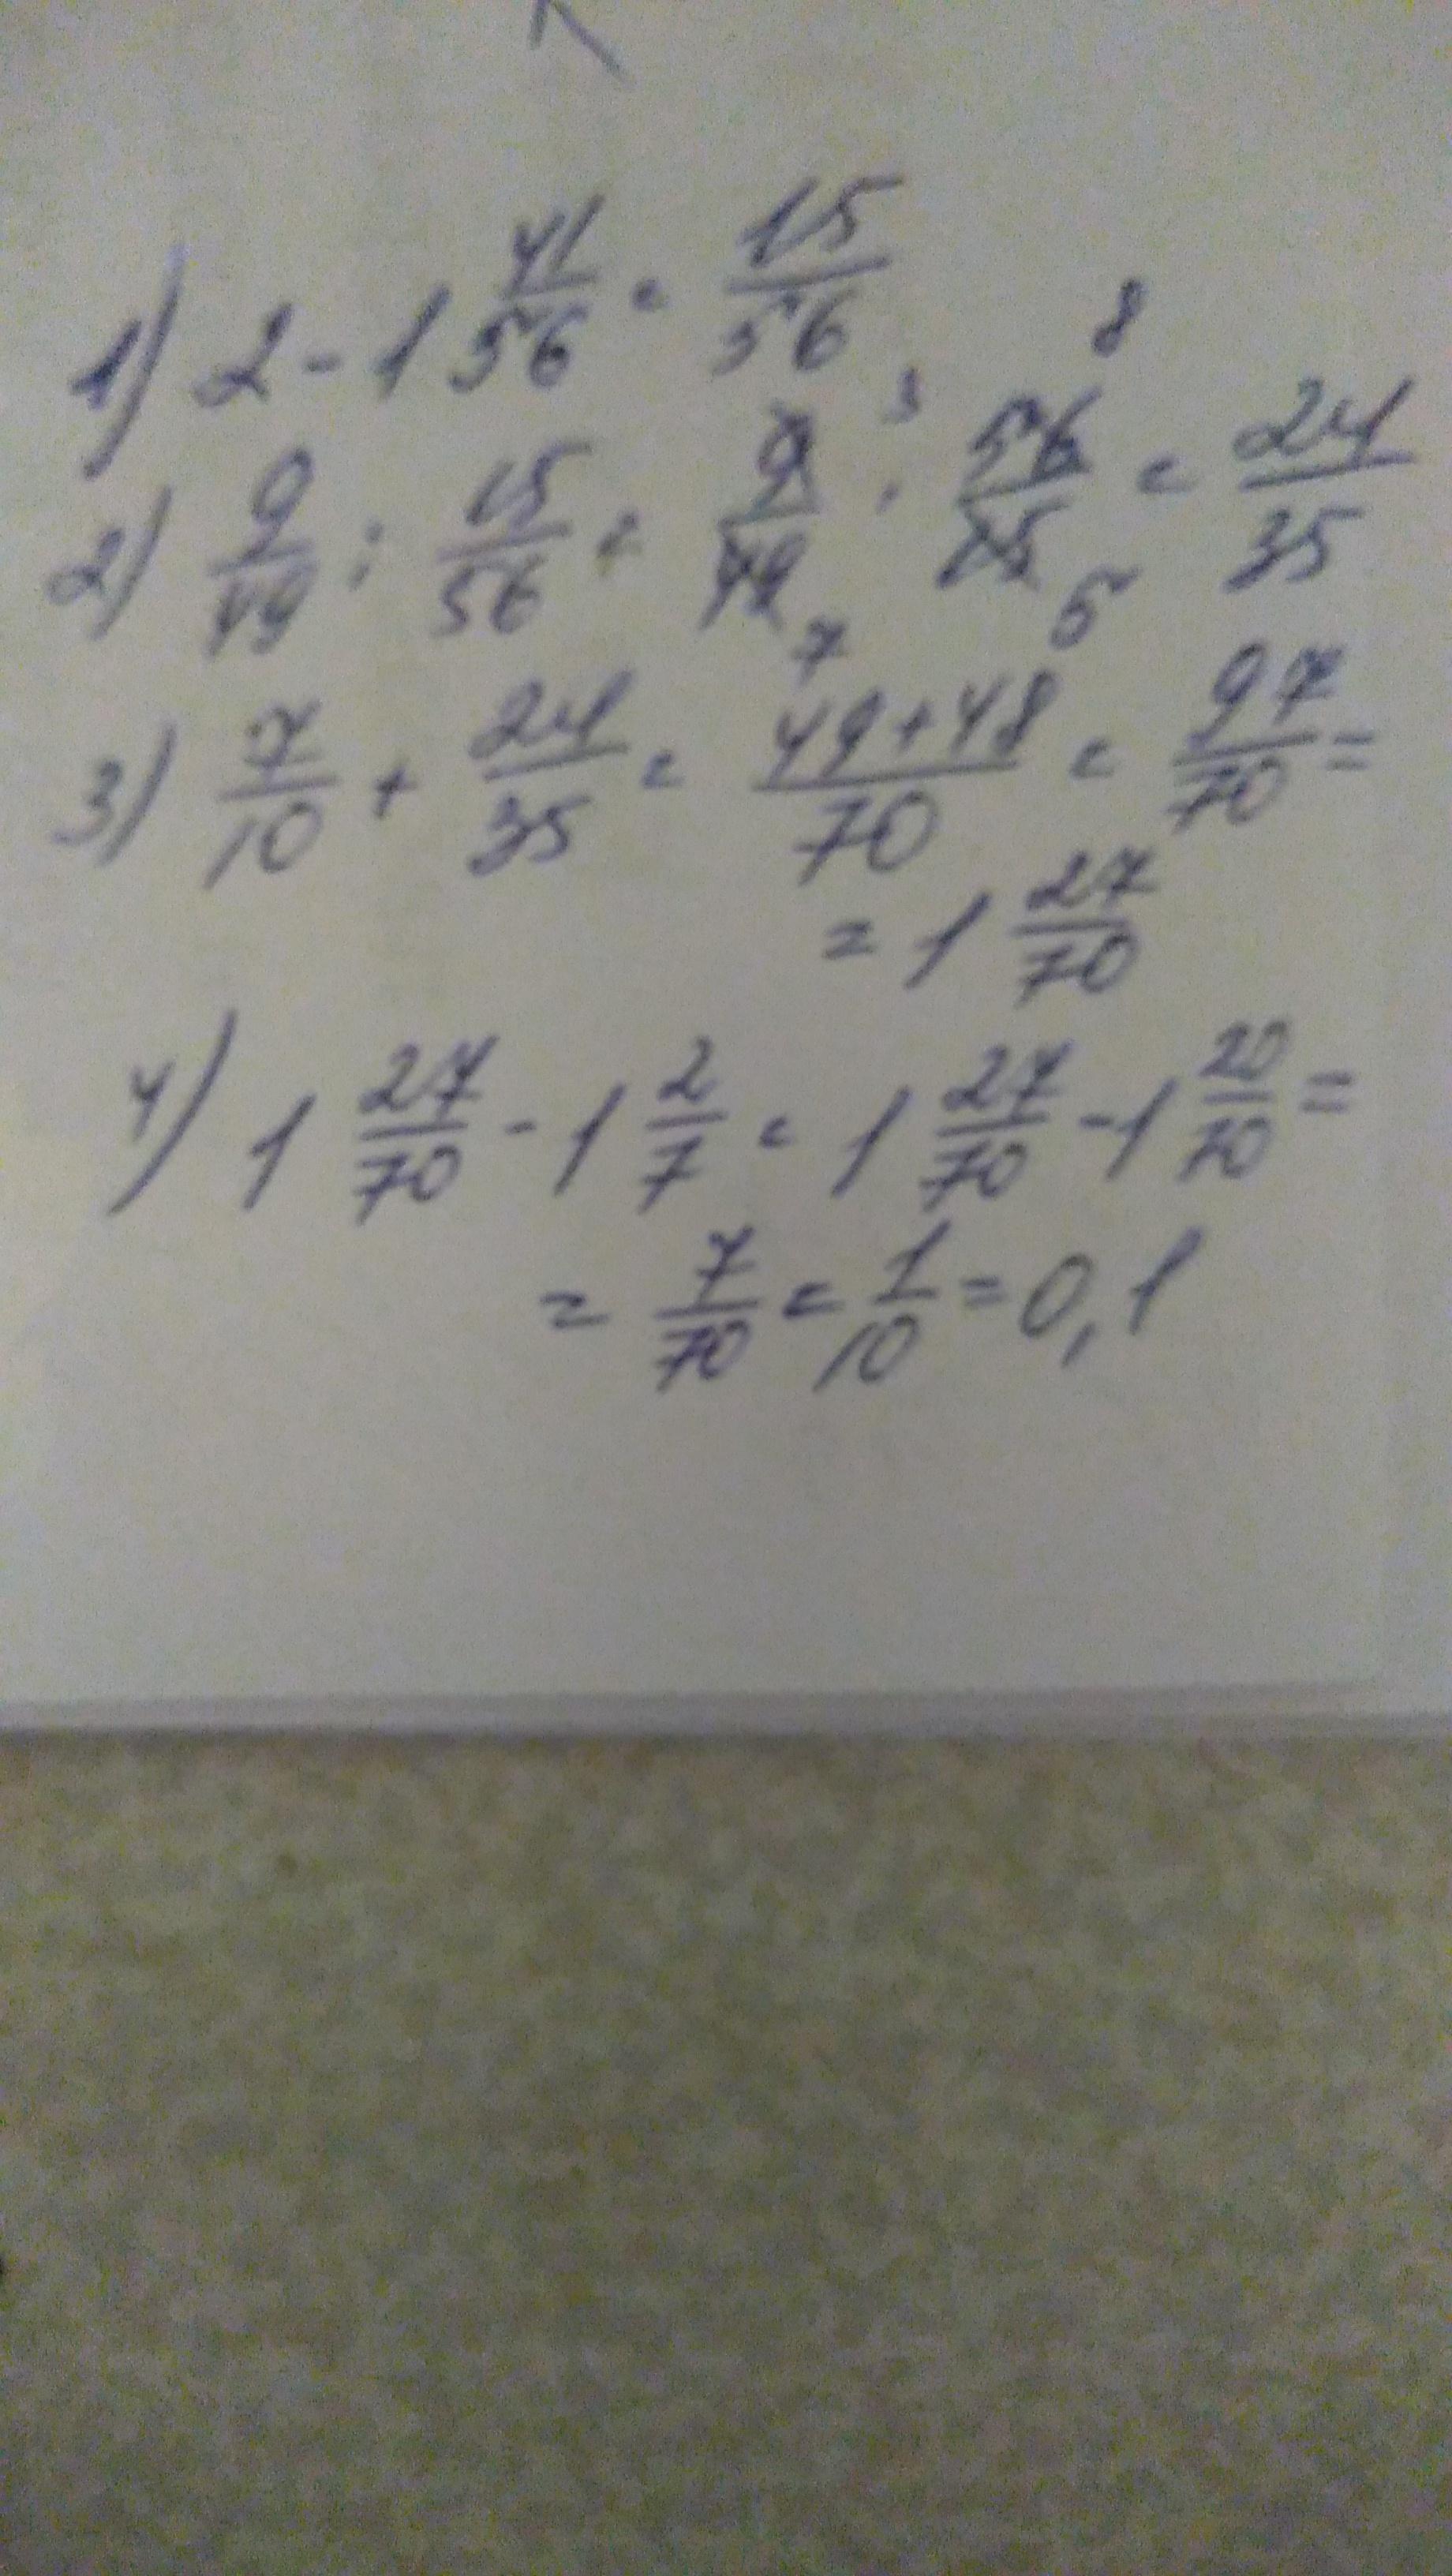 1) 2 - 1 41/56 = 15/56
2) 9/49 : 15/56 = 9/49 · 56/15 = 24/35
3 8
7 5
3) 7/10 + 24/35 = 49+48/70 = 97/70 =
= 1 27/70
4) 1 27/70 - 1 2/7 = 1 27/70 - 1 20/70 =
= 7/70 = 1/10 = 0,1